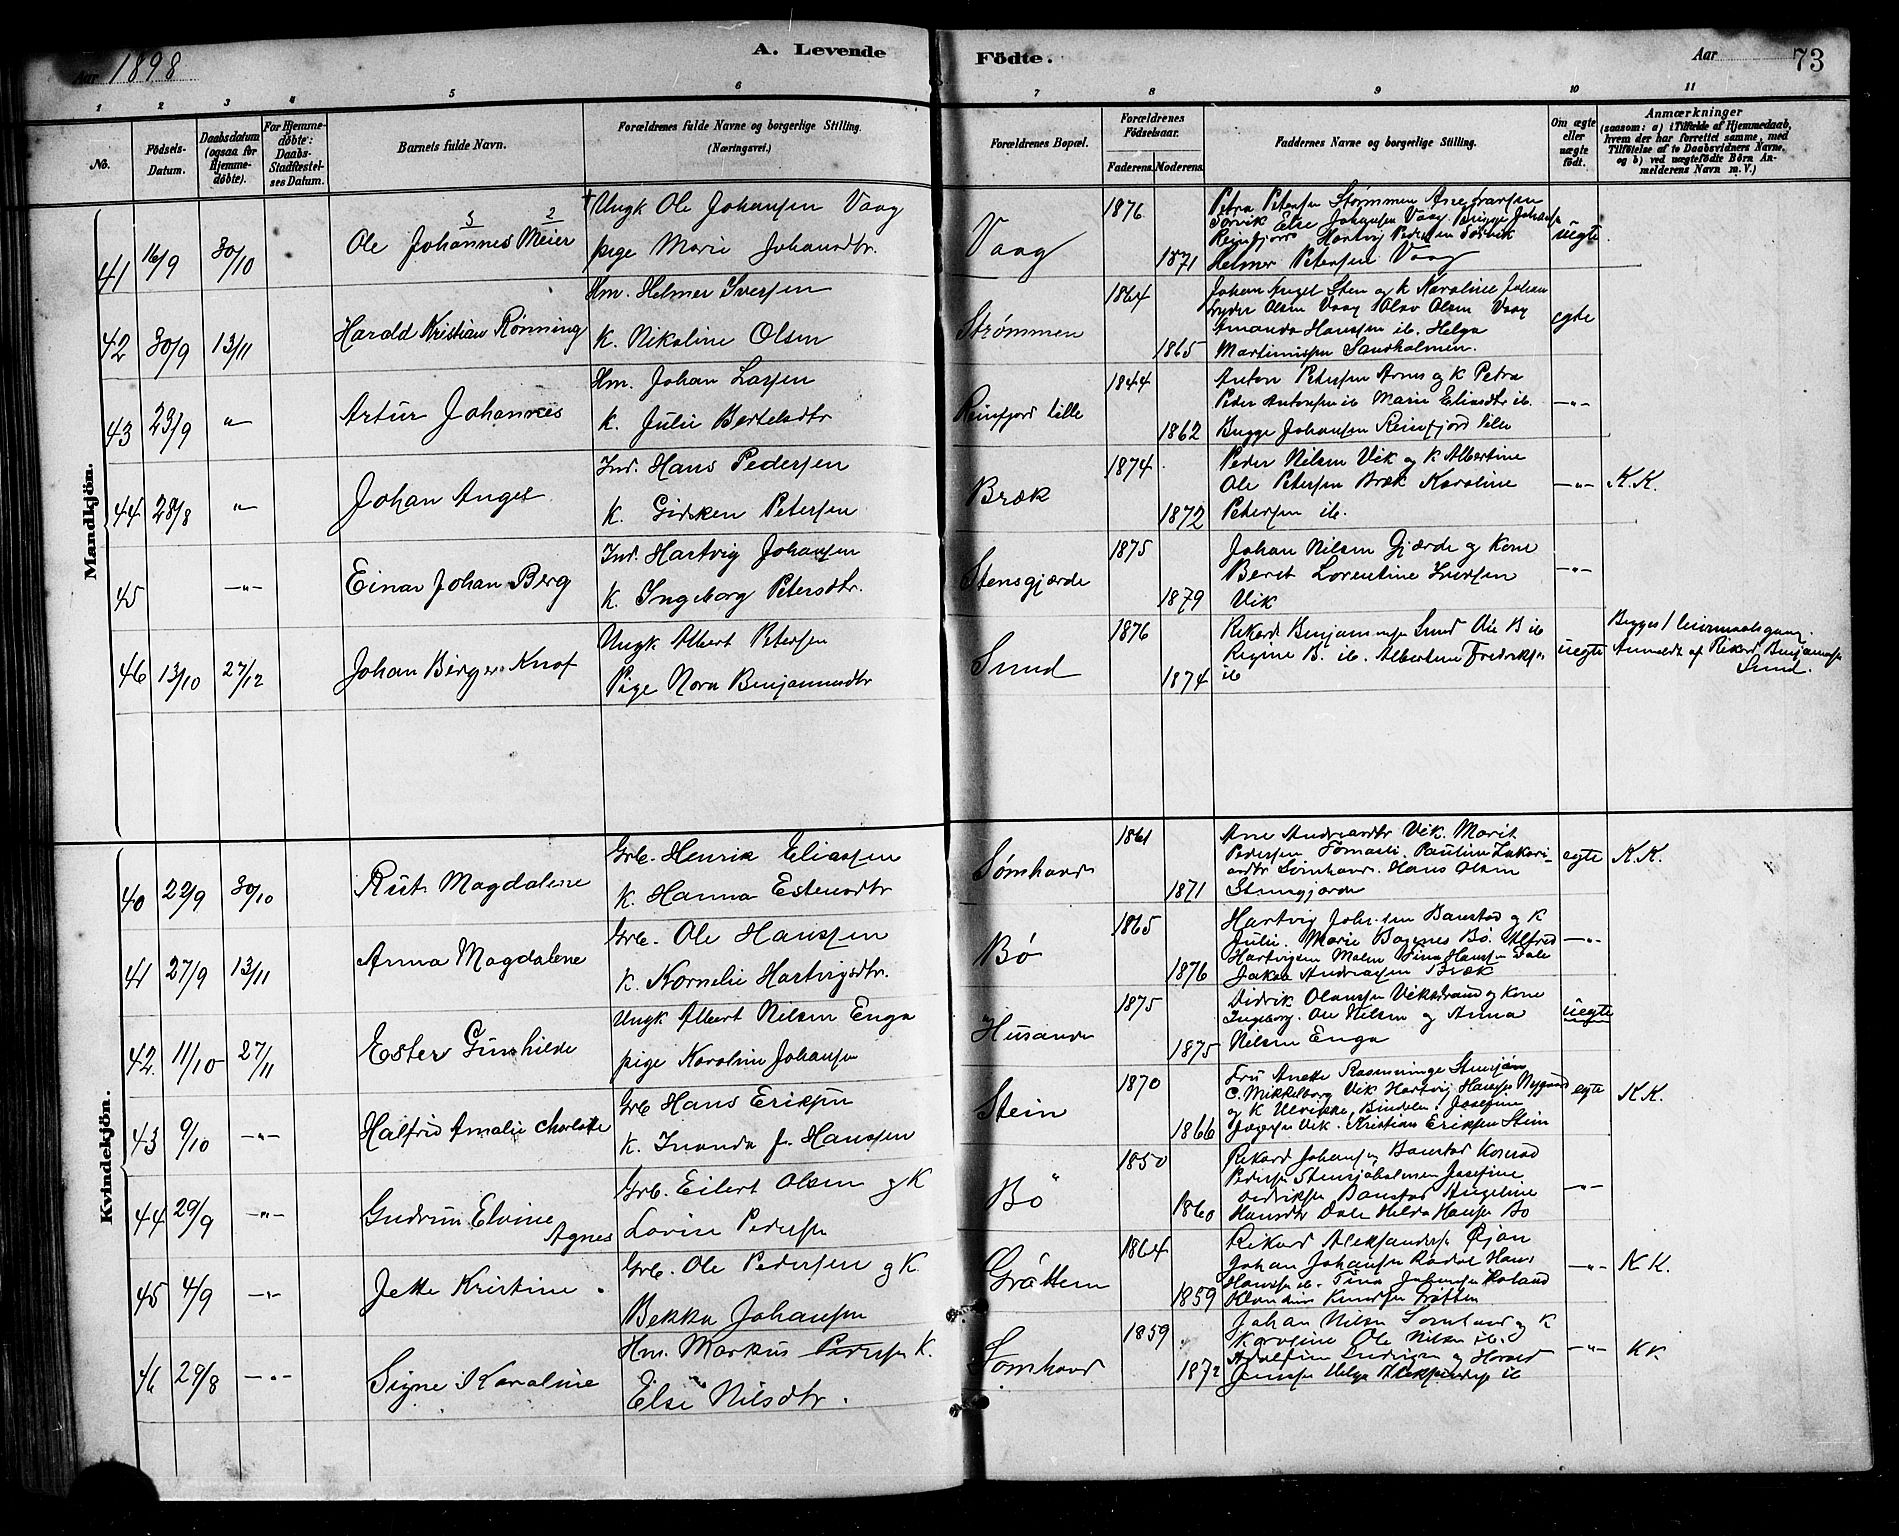 Aar 1898
A. Levende
Födte.
Aar
73
1 2 3 4 5 6 7 8 9 10 11
No.
Födsels-Datum.
Daabsdatum (ogsaa for Hjemmedöbte).
For Hjemmedöbte: Daabs-Stadfæstelses Datum.
Barnets fulde Navn.
Forældrenes fulde Navne og borgerlige Stilling. (Næringsvei.)
Forældrenes Bopæl.
Forældrenes Födselsaar.
Faderens. Moderens.
Faddernes Navne og borgerlige Stilling.
Om ægte eller uægte födt.
Anmærkninger
(saasom: a) i Tilfælde af Hjemmedaab,
hvem der har forrettet samme, med
Tilföielse af to Daabsvidners Navne,
og b) ved uægtefödte Börn An-
melderens Navn m. V.)
Mandkjön.
41 16/9 30/10 Ole Johannes Meier
3 2
Ungk Ole Johansen Vaag
pige Marie Johansdtr.
Vaag
1876
1871
Petra Petersen Strømmen
Else Johansen Vaag Brigge Johansen
Reinfjord Hartvig Pedersen
Helmer Petersen Vaag
uegte
42 30/9 13/11 Harald Kristian Rönning
Hm. Helmer Iversen
K. Nikoline Olsen
Strømmen
1864
1865
Johan Angel Sten og k Karoline Johan
Olsen Vaag Olav Olsen Vaag
Amanda Hanssen ib. Helga
Martinussen Sandholmen.
egte
43 23/9 " Artur Johannes
Hm. Johan Larsen
K. Julie Bertelsdtr
Reinfjord lille
1844
1862
Anton Petersen Arnes og k Petra
Peder Antonsen ib Marie Eliasdtr ib.
Bugge Johansen Reinfjord lille
-"-
44 28/8 " Johan Angel
Ind. Hans Pedersen
K. Gidsken Petersen
Bræk
1874
1872
Peder Nilsen Vik og K Albertine
Ole Petersen Bræk Karoline
Petersen ib.
-"- K.K.
45 -"- Einar Johan Berg
Ind. Hartvig Johansen
K. Ingeborg Petersdtr.
Stensgjærde
1875
1879
Johan Nilsen Gjærde og Kone
Beret Lorentine Iversen
Vik
-"-
46 13/10 27/12 Johan Birger Knof
Ungk Albert Petersen
Pige Nora Benjaminsdtr
Sund
1876
1874
Rikard Benjaminsen Sund Ole B ib
Regine B. ib. Albertine Fredriksen
ib
uegte
Begges 1 leiermaalsgang.
Anmeldt af Rikard Benjaminsen
Sund.
Kvindekjön.
40 22/9 30/10 Rut Magdalene
Grb. Henrik Eliassen
K. Hanna Estensdtr
Sømhavd
1861
1871
Ane Andreasdtr Vik. Marit
Pedersen Tomasli. Pauline Zakari-
asdtr Sømhavd. Hans Olsen
Stensgjærde
egte K.K.
41 27/9 13/11 Anna Magdalene
Grb. Ole Hanssen
K. Kornelie Hartvigsdtr.
Bö
1865
1876
Hartvig Johnsen Baustad og K
Julie. Marie Bø. Alfred
Hartvigsen Malm Tina Hansen Dale
Jakob Andreassen Bræk
-"-
42. 11/10 27/11 Ester Gunhilde
Ungk Albert Nilsen Enga
pige Karoline Johansen
Husande
1875
1875
Didrik Olaussen Vikestrand og Kone
Ingeborg. Ole Nilsen og Anna
Nilsen Enga
uegte
43 9/10 -"- Halfrid Amalie Charlotte
Grb Hans Eriksen
K. Inanda J. Hanssen
Stein
1870
1866
Fru Anette
C. Mikkelborg Vik Hartvig Hansen Nygaard
og K Ulrikke, Bindalen. Josefine
Jægersen Vik. Kristian Eriksen Stein
egte K.K.
44 29/9 -"- Gudrun Elvine
Agnes
Grb. Eilert Olsen og K
Lovise Pedersen
Bö
1850
1860
Rikard Johansen Baustad Konrad
Pedersen Stensjøholmen Josefine
Baustad Angeline
Hansdtr Dale Helda Hansen Bö
-"-
45 4/9 -"- Jette Kristine.
Grb. Ole Pedersen og K
Bekka Johansen
Gråttem
1864
1859
Rikard Aleksandersen Øjan
Johan Johansen Hans
Hanssen ib. Tina Johansen
Knudsen
-"- K K.
46 29/8 -"- Signe Karoline
Hm. Markus Pedersen K.
Else Nilsdtr.
Sømhavd
1859
1872
Johan Nilsen Sømhavd og K
Karoline Ole Nilsen ib.
og Harald
Jenssen Helga ib
-"- K K.